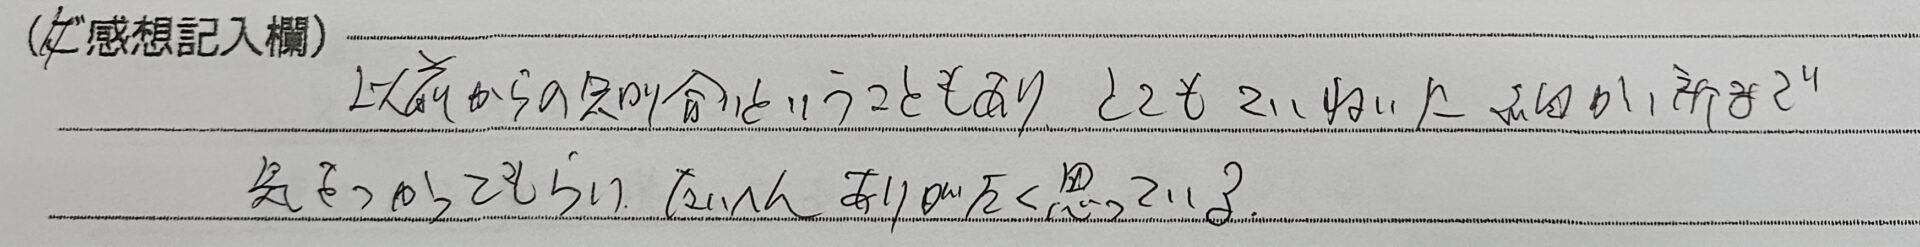 (ご感想記入欄)
以前からの知り合いということもあり とても ていねいに 細かい所まで
気をつかってもらい たいへん ありがたく思っている.